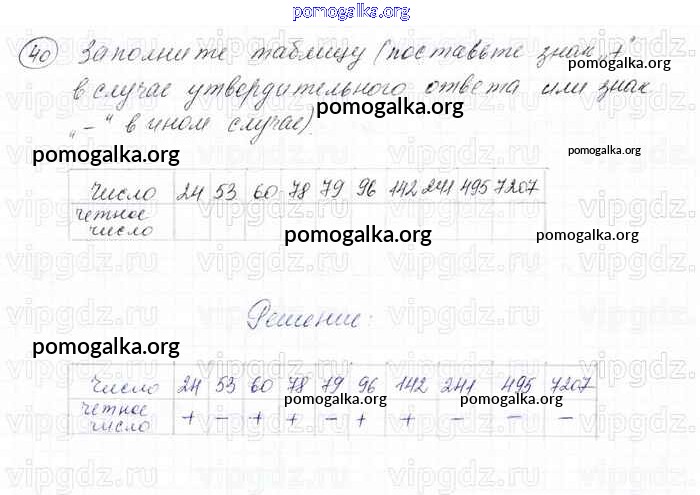 pomogalka.org
40 Заполните таблицу (поставьте знак „+“
pomogalka.org
в случае утвердительного ответа или знак
pomogalka.org
„–“ в ином случае).
pomogalka.org pomogalka.org
Число 24 53 60 78 79 96 142 241 495 7207
четное число
pomogalka.org pomogalka.org
Решение:
pomogalka.org
Число 24 53 60 78 79 96 142 241 495 7207
pomogalka.org pomogalka.org
четное число + – + + – + + – – –